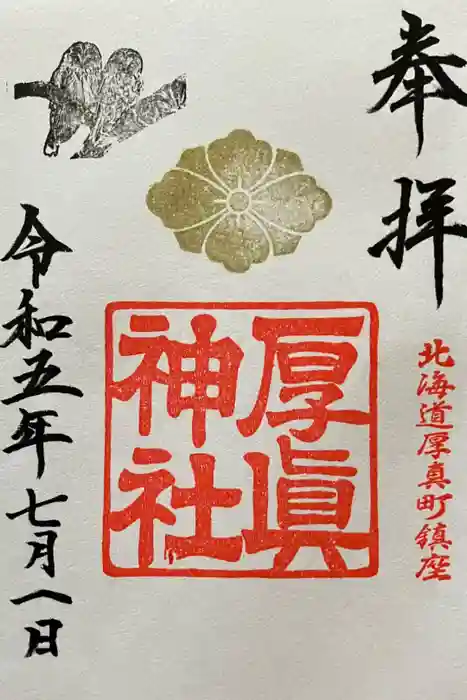 奉拝
北海道厚真町鎮座
厚眞
神社
令和五年七月一日